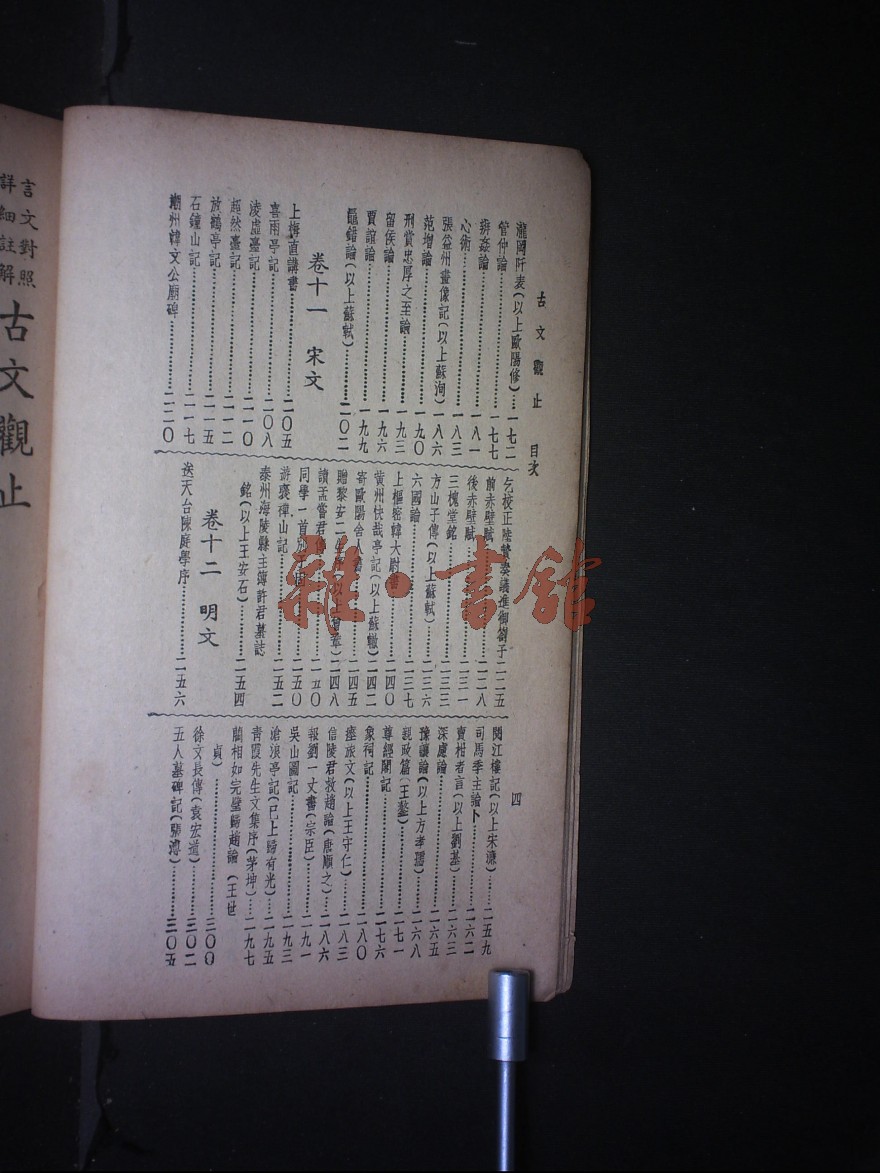 古文觀止 目次
四
瀧岡阡表(以上歐陽修)…一七二
管仲論…一七七
辨姦論…一八一
心術…一八三
張益州畫像記(以上蘇洵)…一八六
范增論…一九〇
刑賞忠厚之至論…一九三
留侯論…一九六
賈誼論…一九九
鼂錯論(以上蘇軾)…二〇二
卷十一 宋文
上梅直講書…二〇五
喜雨亭記…二〇八
淩虛臺記…二一〇
超然臺記…二一二
放鶴亭記…二一五
石鐘山記…二一七
潮州韓文公廟碑…二二〇
乞校正陸贄奏議進御劄子二二五
前赤壁賦…二二八
後赤壁賦…二三一
三槐堂銘…二三三
方山子傳(以上蘇軾)…二三六
六國論…二三七
上樞密韓大尉書…二四〇
黃州快哉亭記(以上蘇轍)二四二
寄歐陽舍人書…二四五
贈黎安二生序(以上曾鞏)二四八
讀孟嘗君傳…二五〇
同學一首別子固…二五〇
游褒禪山記…二五二
泰州海陵縣主簿許君墓誌
銘(以上王安石)…二五四
卷十二 明文
送天台陳庭學序…二五六
閱江樓記(以上宋濂)…二五九
司馬季主論卜…二六二
賣柑者言(以上劉基)…二六三
深慮論…二六五
豫讓論(以上方孝孺)…二六八
親政篇(王鏊)…二七一
尊經閣記…二七六
象祠記…二八〇
瘞旅文(以上王守仁)…二八三
信陵君救趙論(唐順之)…二八六
報劉一丈書(宗臣)…二九一
吳山圖記…二九三
滄浪亭記(已上歸有光)…二九五
青霞先生文集序(茅坤)…二九七
藺相如完璧歸趙論(王世
貞)…三〇〇
徐文長傳(袁宏道)…三〇二
五人墓碑記(張溥)…三〇五
言文對照
詳細註解
古文觀止
雜·書館